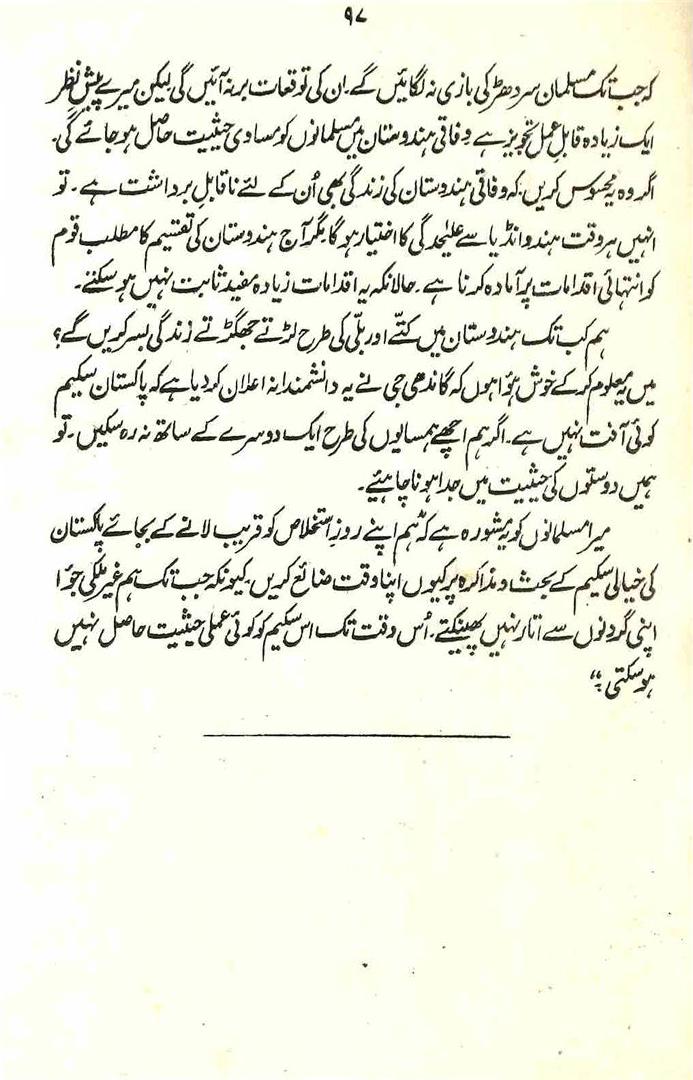 ۹۷
کہ جب تک مسلمان سر دھڑ کی بازی نہ لگائیں گے۔ ان کی توقعات بر نہ آئیں گی لیکن میرے پیش نظر
ایک زیادہ قابلِ عمل تجویز ہے وفاقی ہندوستان میں مسلمانوں کو مساوی حیثیت حاصل ہو جائے گی۔
اگر وہ یہ محسوس کریں۔ کہ وفاقی ہندوستان کی زندگی بھی اُن کے لئے ناقابلِ برداشت ہے۔ تو
انہیں ہر وقت ہندو انڈیا سے علیٰحدگی کا اختیار ہو گا مگر آج ہندوستان کی تقسیم کا مطلب قوم
کو انتہائی اقدامات پر آمادہ کرنا ہے۔ حالانکہ یہ اقدامات زیادہ مفید ثابت نہیں ہو سکتے۔
ہم کب تک ہندوستان میں کتّے اور بلّی کی طرح لڑتے جھگڑتے زندگی بسر کریں گے؟
میں یہ معلوم کر کے خوش ہؤا ہوں کہ گاندھی جی نے یہ دانشمندانہ اعلان کر دیا ہے کہ پاکستان سکیم
کوئی آفت نہیں ہے۔ اگر ہم اچھے ہمسایوں کی طرح ایک دوسرے کے ساتھ نہ رہ سکیں۔ تو
ہمیں دوستوں کی حیثیت میں جدا ہونا چاہئیے۔
میرا مسلمانوں کو یہ مشورہ ہے کہ ہم اپنے روزِ استخلاص کو قریب لانے کے بجائے پاکستان
کی خیالی سکیم کے بحث و مذاکرہ پر کیوں اپنا وقت ضائع کریں۔ کیونکہ جب تک ہم غیر ملکی جؤا
اپنی گردنوں سے اتار نہیں پھینکتے۔ اُس وقت تک اس سکیم کو کوئی عملی حیثیت حاصل نہیں
ہو سکتی۔“